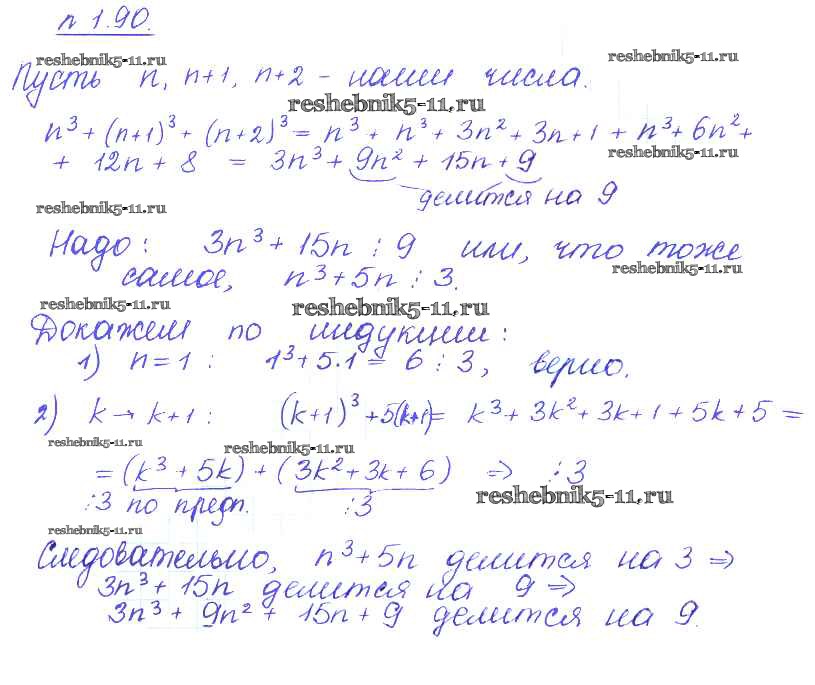 n 1.90.
reshebnik5-11.ru
reshebnik5-11.ru
Пусть n, n+1, n+2 - наши числа.
reshebnik5-11.ru
n³ + (n+1)³ + (n+2)³ = n³ + n³ + 3n² + 3n + 1 + n³ + 6n² +
reshebnik5-11.ru
+ 12n + 8 = 3n³ + 9n² + 15n + 9
делится на 9
reshebnik5-11.ru
Надо: 3n³ + 15n ⋮ 9 или, что тоже
reshebnik5-11.ru
самое, n³ + 5n ⋮ 3.
reshebnik5-11.ru
reshebnik5-11.ru
Докажем по индукции:
1) n = 1 : 1³ + 5·1 = 6 ⋮ 3, верно.
2) k → k+1 : (k+1)³ + 5(k+1) = k³ + 3k² + 3k + 1 + 5k + 5 =
reshebnik5-11.ru
reshebnik5-11.ru
= (k³ + 5k) + (3k² + 3k + 6) ⇒ ⋮ 3
⋮ 3 по предп. ⋮ 3
reshebnik5-11.ru
reshebnik5-11.ru
Следовательно, n³ + 5n делится на 3 ⇒
3n³ + 15n делится на 9 ⇒
3n³ + 9n² + 15n + 9 делится на 9.